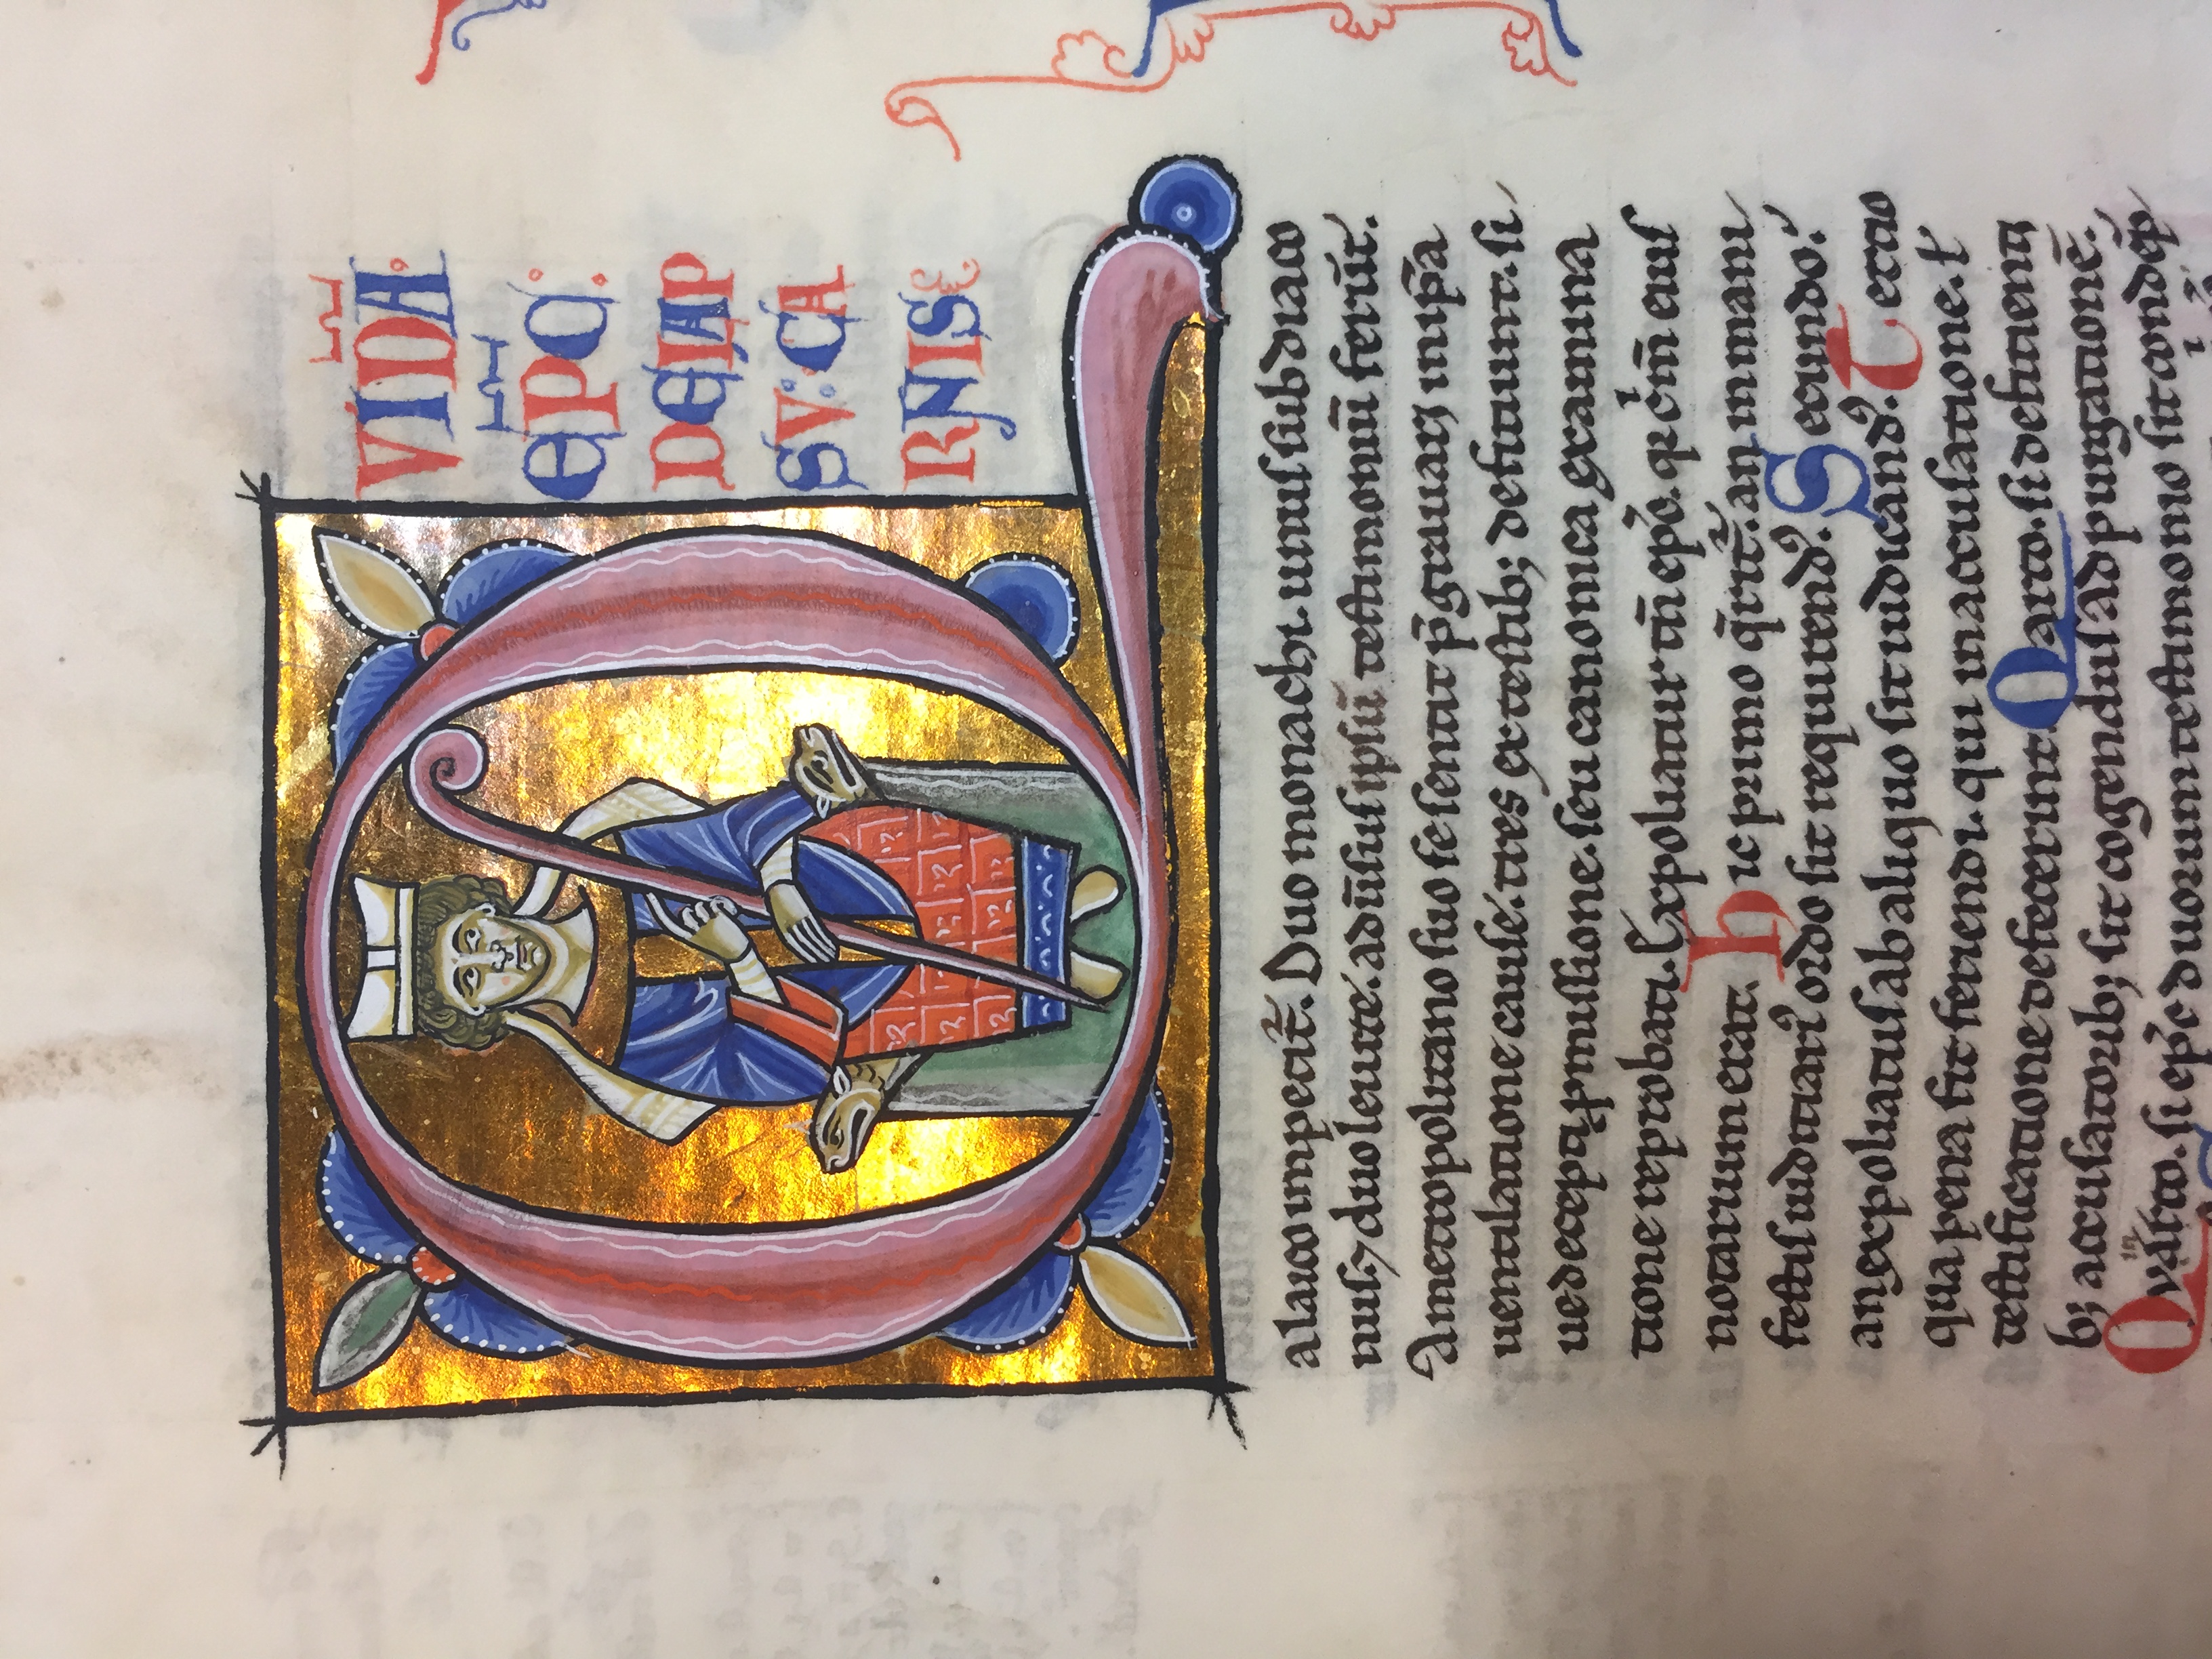 VIDA.
EPC.
DELAP
SV. CA
RNIS
a laico inpetit̄. Duo monachi. unus subdiaco
nus ⁊ duo leuite. adũsus ipsũ testimoniũ ferũt.
A metropolitano suo se sentit p̄grauari. in ip̄a
uentilatione cause. tres ex testib; deficiunt. si
ue decepti p̱missione. seu canonica examina
tione reprobati. Expoliatur tm̄ ep̄c. q̱ om̄ eius
notorium erat. hic primo q̄rit̄. an in mani
festis iudiciari᷒ ordo sit requirend᷒. Secundo.
an expoliatus ab aliquo sit iudicand᷒. Tercio
qua pena sit feriendus. qui in accusatione. ł
testificatione defecerint. Quarto. si deficienti
b; accusatorib; sit cogendus ad purgationē.
Quinto. si ep̄c duorum testimonio sit condēp